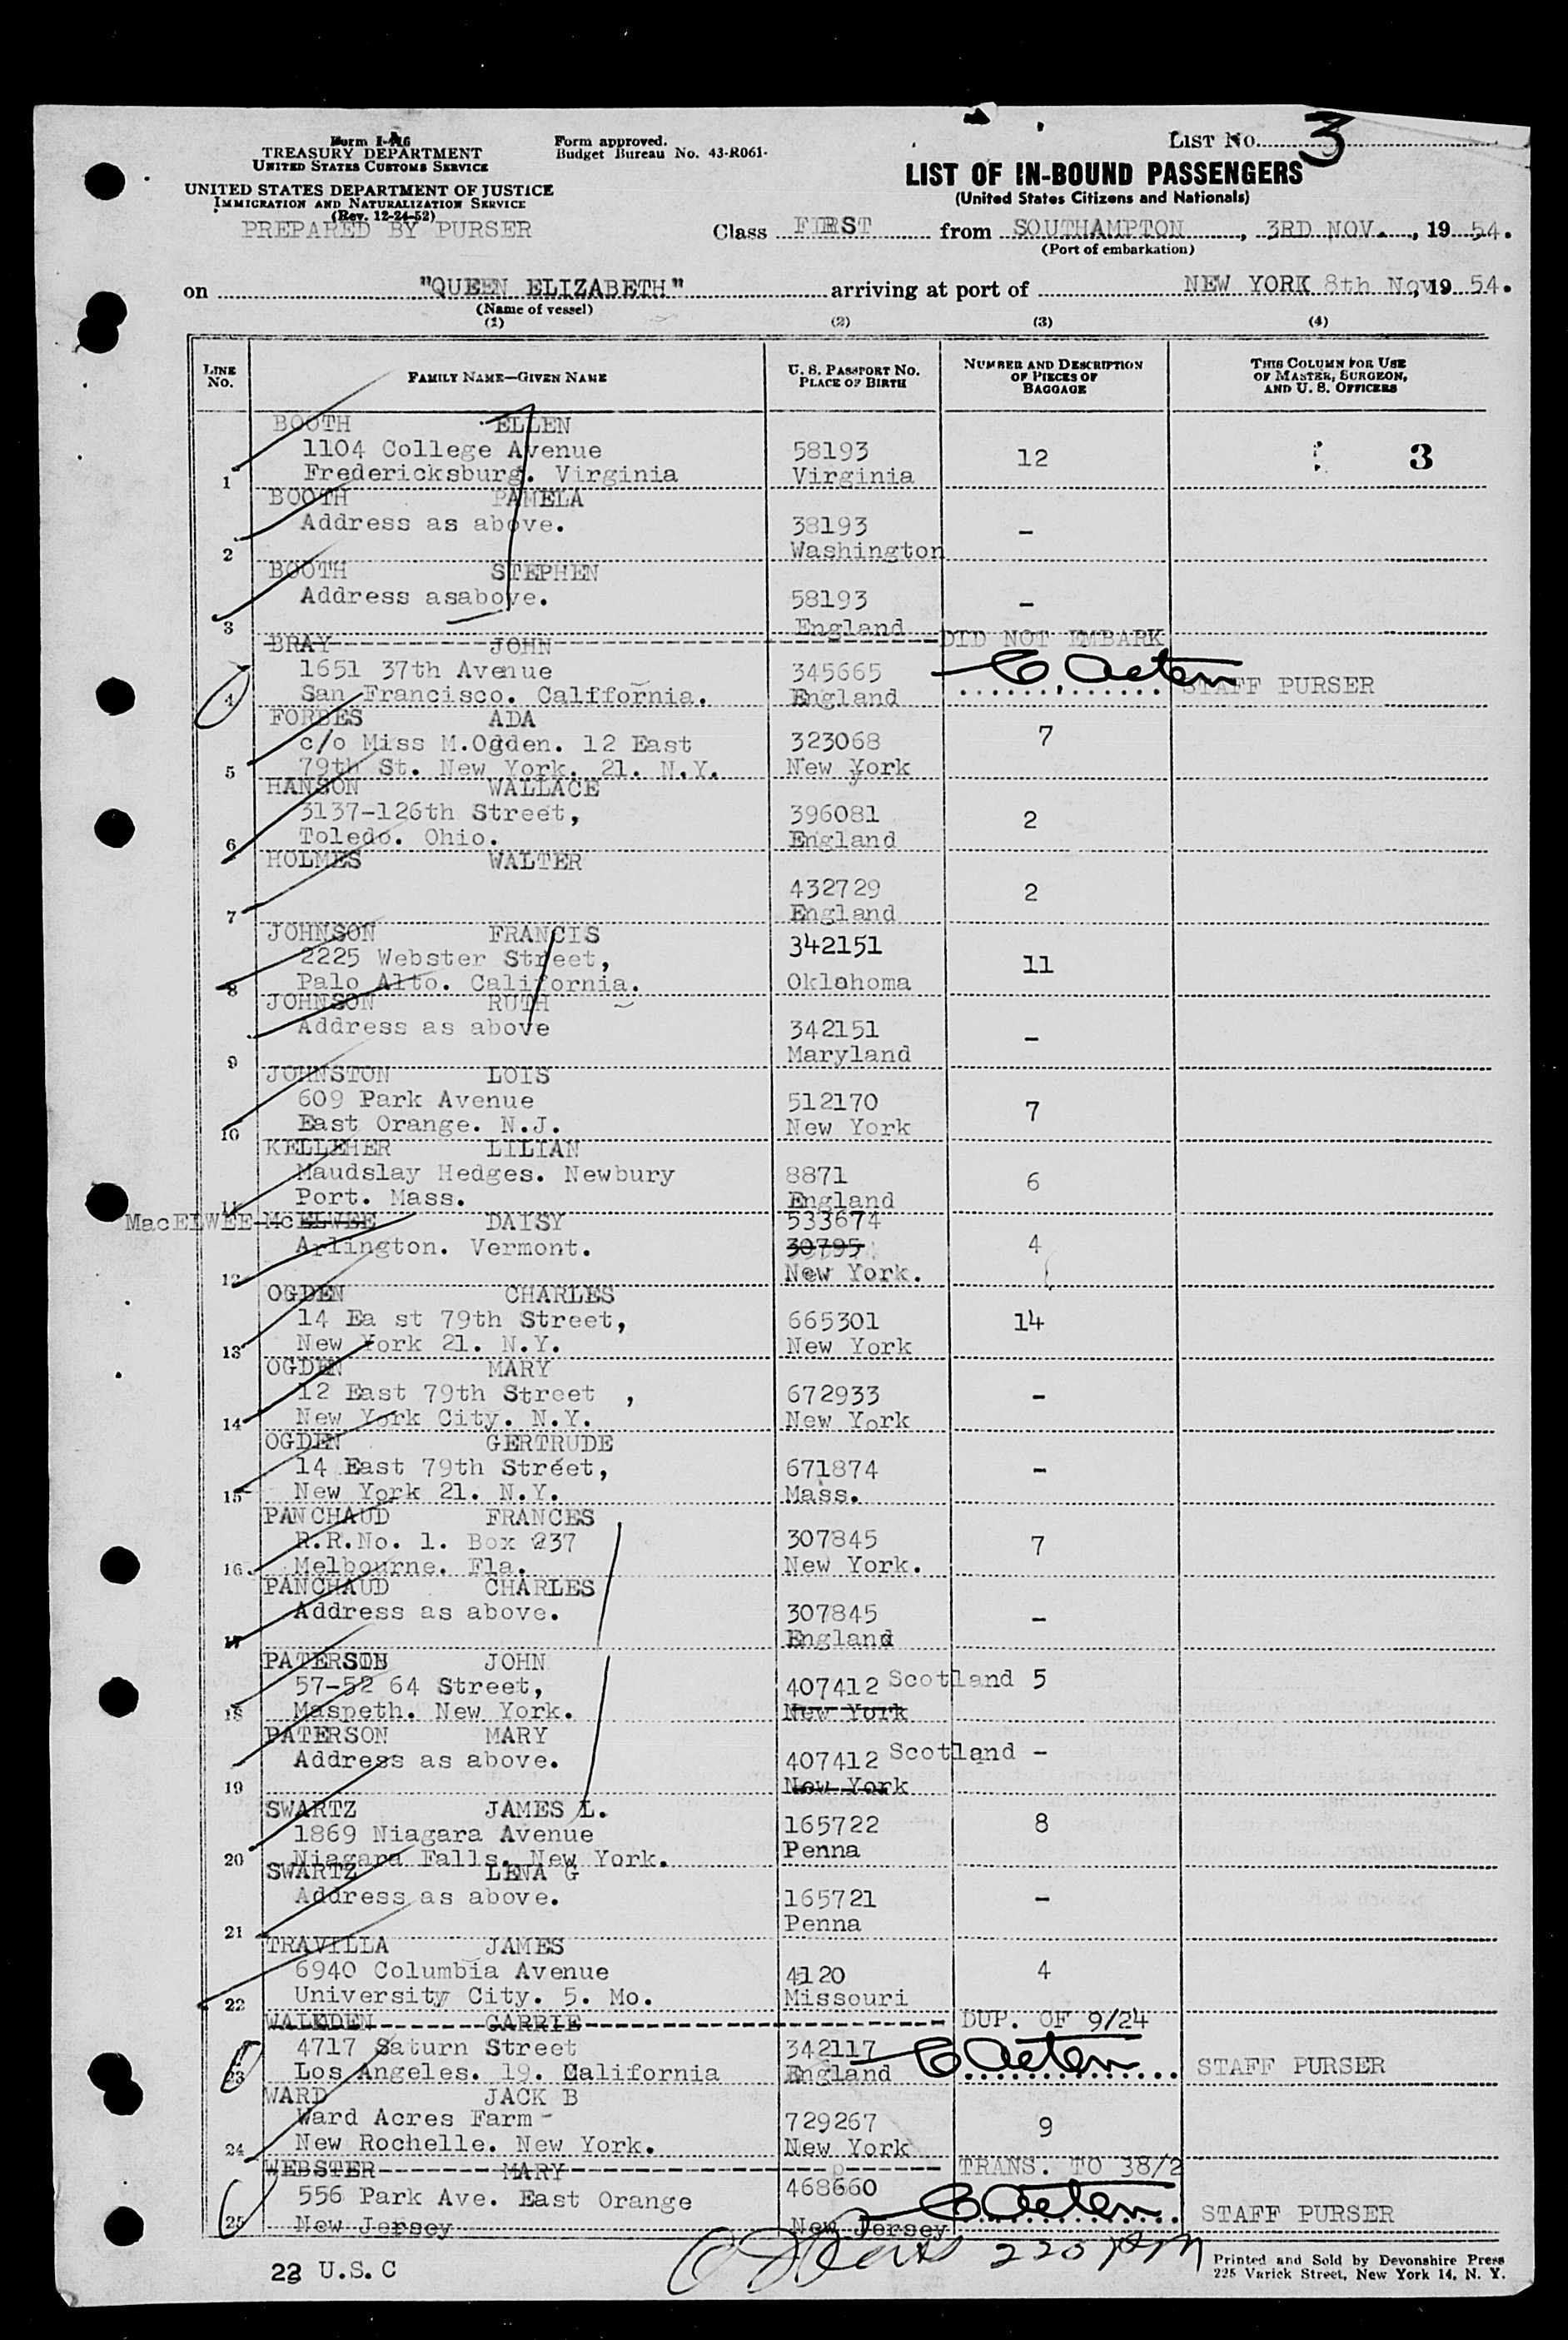 Form I-416
TREASURY DEPARTMENT
UNITED STATES CUSTOMS SERVICE
UNITED STATES DEPARTMENT OF JUSTICE
IMMIGRATION AND NATURALIZATION SERVICE
(Rev. 12-24-52)
PREPARED BY PURSER
Form approved.
Budget Bureau No. 43-R061-
LIST NO. 3
LIST OF IN-BOUND PASSENGERS
(United States Citizens and Nationals)
Class FIRST from SOUTHAMPTON, 3RD NOV., 19 54.
(Port of embarkation)
on "QUEEN ELIZABETH" arriving at port of NEW YORK 8th Nov, 19 54.
(Name of vessel)
(1) (2) (3) (4)
LINE NO. FAMILY NAME—GIVEN NAME U. S. PASSPORT NO. PLACE OF BIRTH NUMBER AND DESCRIPTION OF PIECES OF BAGGAGE THIS COLUMN FOR USE OF MASTER, SURGEON, AND U. S. OFFICERS
BOOTH ELLEN
1104 College Avenue 58193 12 3
1 Fredericksburg. Virginia Virginia
BOOTH PAMELA
Address as above. 38193 -
2 Washington
BOOTH STEPHEN
Address asabove. 58193 -
3 England
BRAY JOHN DID NOT EMBARK
1651 37th Avenue 345665
4 San Francisco. California. England STAFF PURSER
FORBES ADA
c/o Miss M.Ogden. 12 East 323068 7
5 79th St. New York. 21. N.Y. New York
HANSON WALLACE
3137-126th Street, 396081 2
6 Toledo. Ohio. England
HOLMES WALTER
432729 2
7 England
JOHNSON FRANCIS 342151
2225 Webster Street, 11
8 Palo Alto. California. Oklahoma
JOHNSON RUTH
Address as above 342151 -
9 Maryland
JOHNSTON LOIS
609 Park Avenue 512170 7
10 East Orange. N.J. New York
KELLEHER LILIAN
Maudslay Hedges. Newbury 8871 6
11 Port. Mass. England
MacELWEE McELWEE DAISY 533674
Arlington. Vermont. 30795 4
12 New York.
OGDEN CHARLES
14 Ea st 79th Street, 665301 14
13 New York 21. N.Y. New York
OGDEN MARY
12 East 79th Street , 672933 -
14 New York City. N.Y. New York
OGDEN GERTRUDE
14 East 79th Street, 671874 -
15 New York 21. N.Y. Mass.
PANCHAUD FRANCES
R.R.No. 1. Box 237 307845 7
16 Melbourne. Fla. New York.
PANCHAUD CHARLES
Address as above. 307845 -
17 England
PATERSON JOHN
57-52 64 Street, 407412 Scotland 5
18 Maspeth. New York. New York
PATERSON MARY
Address as above. 407412 Scotland -
19 New York
SWARTZ JAMES L.
1869 Niagara Avenue 165722 8
20 Niagara Falls. New York. Penna
SWARTZ LENA G
Address as above. 165721 -
21 Penna
TRAVILLA JAMES
6940 Columbia Avenue 4120 4
22 University City. 5. Mo. Missouri
GARRIE DUP. OF 9/24
4717 Saturn Street 342117
23 Los Angeles. 19. California England STAFF PURSER
WARD JACK B
Ward Acres Farm - 729267 9
24 New Rochelle. New York. New York
WEBSTER MARY TRANS. TO 38/2
556 Park Ave. East Orange 468660
25 New Jersey New Jersey STAFF PURSER
220 PM
22 U.S.C
Printed and Sold by Devonshire Press
225 Varick Street, New York 14, N. Y.